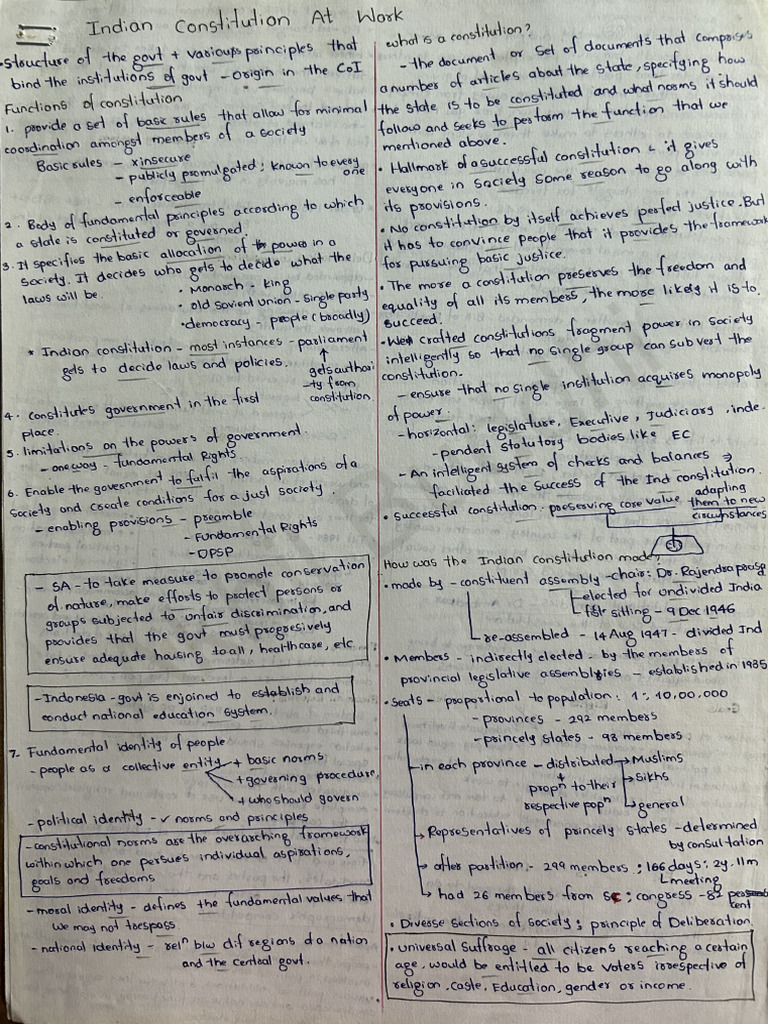 Indian Constitution At Work
-Structure of the govt + various principles that
bind the institutions of govt - Origin in the CoI
Functions of constitution
1. provide a set of basic rules that allow for minimal
coordination amongst members of a society
Basic rules - xinsecure
- publicly promulgated; known to every
one
- enforceable
2. Body of fundamental principles according to which
a state is constituted or governed.
3. It specifies the basic allocation of power in a
society. It decides who gets to decide what the
laws will be.
• Monarch - king
• old Sovient union - single party
• democracy - people (broadly)
* Indian constitution - most instances - parliament
gets to decide laws and policies.
gets authori
-ty from
constitution
4. Constitutes government in the first
place.
5. limitations on the powers of government.
- one way - fundamental Rights
6. Enable the government to fulfil the aspirations of a
Society and create conditions for a just society.
- enabling provisions - preamble
- Fundamental Rights
- DPSP
- SA - to take measure to promote conservation
of nature, make efforts to protect persons or
groups subjected to unfair discrimination, and
provides that the govt must progresively
ensure adequate housing to all, healthcare, etc
- Indonesia - govt is enjoined to establish and
conduct national education system.
7. Fundamental identity of people
- people as a collective entity + basic norms
+ governing procedure,
+ who should govern
- political identity - ✓ norms and principles
- constitutional norms are the overarching framework
within which one persues individual aspirations,
goals and freedoms
- moral identity - defines the fundamental values that
we may not trespass
- national identity - relⁿ b/w dif regions do nation
and the central govt.
what is a constitution?
- the document or set of documents that comprises
a number of articles about the state, specifying how
the state is to be constituted and what norms it should
follow and seeks to perform the function that we
mentioned above.
• Hallmark of a successful constitution - it gives
everyone in society some reason to go along with
its provisions.
• No constitution by itself achieves perfect justice. But
it has to convince people that it provides the framework
for pursuing basic justice.
• The more a constitution preserves the freedom and
equality of all its members, the more likely it is to
succeed.
• Well crafted constitutions fragment power in society
intelligently so that no single group can subvert the
constitution.
- ensure that no single institution acquires monopoly
of power.
- horizontal: legislature, Executive, Judiciary, inde.
- pendent statutory bodies like EC
- An intelligent system of checks and balances →
faciliated the success of the Ind constitution.
• Successful constitution - preserving core value adapting
them to new
circumstances
How was the Indian constitution made?
• made by - constituent assembly - chair: Dr. Rajendra prasad
elected for undivided India
first sitting - 9 Dec 1946
re-assembled - 14 Aug 1947 - divided Ind
• Members - indirectly elected - by the members of
provincial legislative assemblies - established in 1935
• Seats - proportional to population: 1:10,00,000
- provinces - 292 members
- princely states - 93 members
in each province - distributed → Muslims
propⁿ to their → Sikhs
respective popⁿ → general
→ Representatives of princely states - determined
by consultation
→ after partition - 299 members; 166 days: 2y. 11m
meeting
→ had 26 members from SC; congress - 82 percent
• Diverse sections of society; principle of Deliberation
• Universal Suffrage - all citizens reaching a certain
age, would be entitled to be voters irrespective of
religion, caste, Education, gender or income.